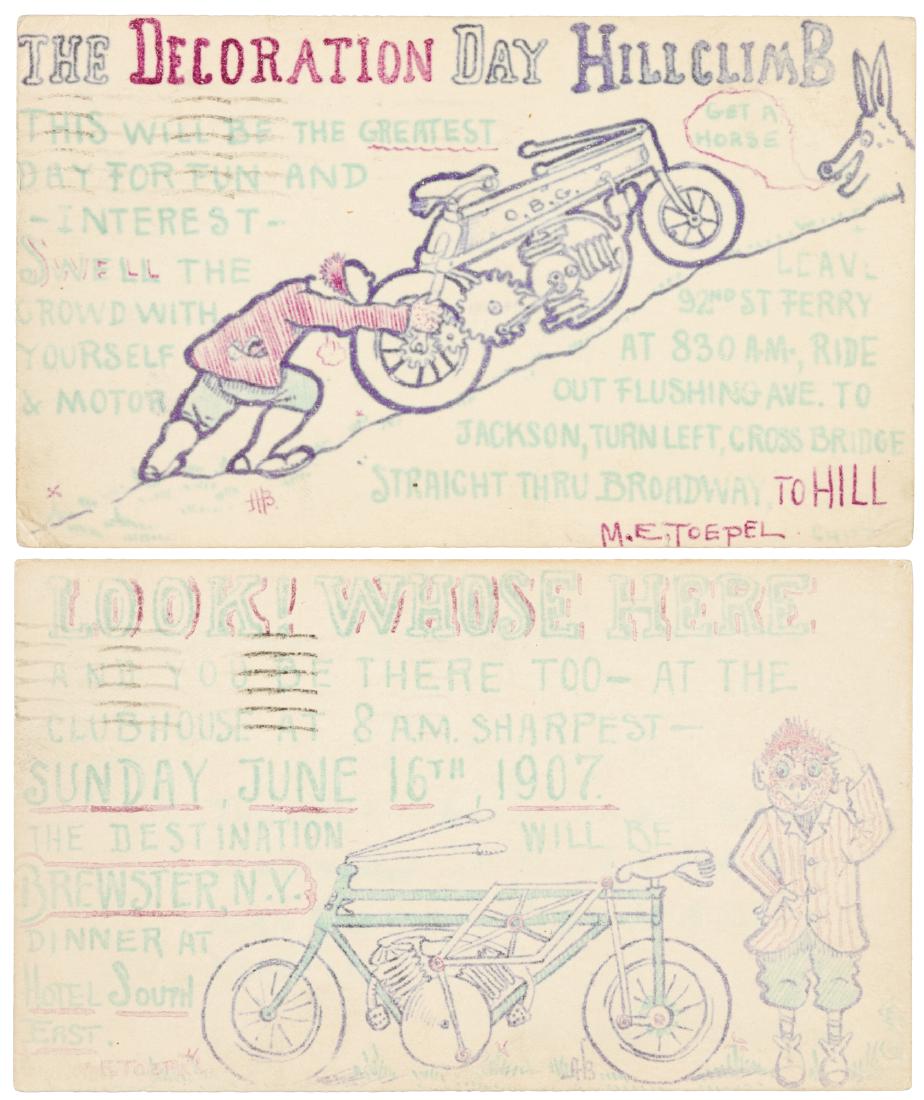 THE DECORATION DAY HILLCLIMB
THIS WILL BE THE GREATEST
DAY FOR FUN AND
-INTEREST-
SWELL THE
CROWD WITH
YOURSELF
& MOTOR
GET A
HORSE
O.B.G.
WILL
LEAVE
92ND ST FERRY
AT 830 A.M., RIDE
OUT FLUSHING AVE. TO
JACKSON, TURN LEFT, CROSS BRIDGE
STRAIGHT THRU BROADWAY, TO HILL
AB.
M.E. TOEPEL
LOOK! WHOSE HERE
AND YOU BE THERE TOO- AT THE
CLUBHOUSE AT 8 A.M. SHARPEST-
SUNDAY, JUNE 16TH, 1907.
THE DESTINATION WILL BE
BREWSTER, N.Y.
DINNER AT
HOTEL SOUTH
EAST.
AB